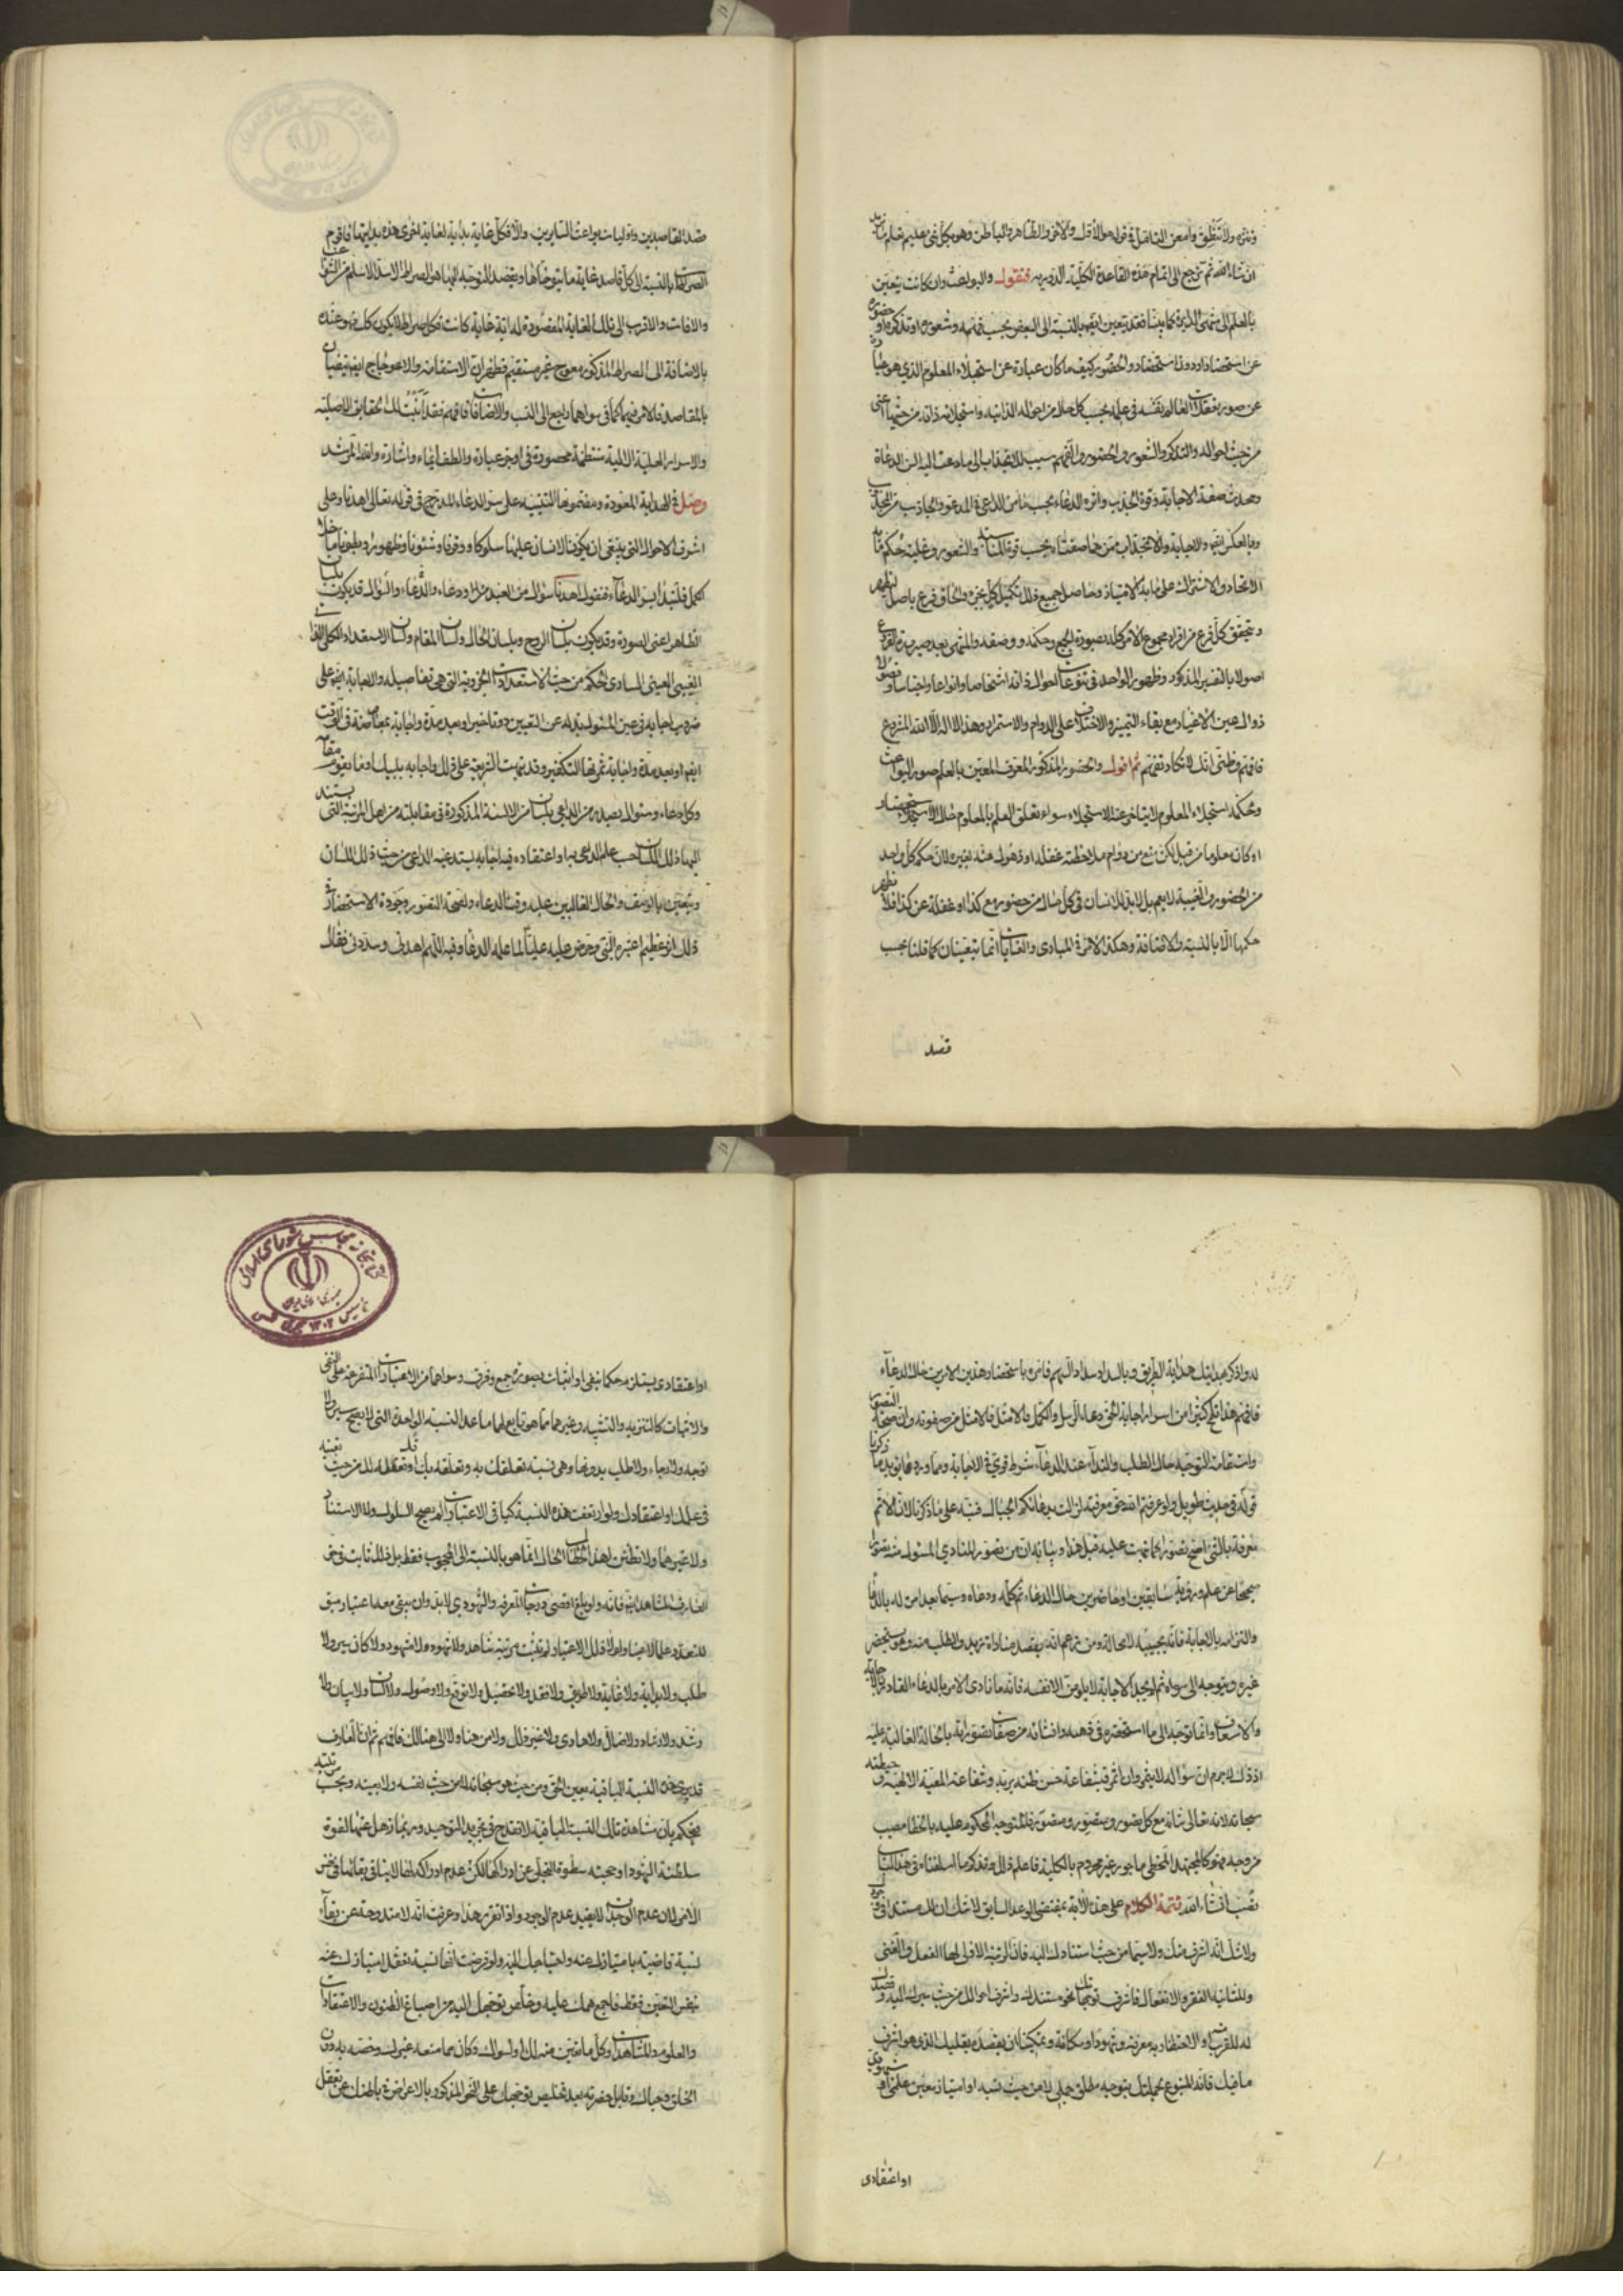 وتنزه ولا تنظر وامعن التامل في قوله هو الأول والآخر والظاهر والباطن وهو بكل شئ عليم
ان شاء الله ثم نرجع الى اتمام هذه القاعدة الكلية فنقول والبواعث وان كانت يتعين
بالعلم فقد يتعين ايضا بالنسبة الى البعض بحسب وشعوره او تذكره او حضوره
عن استحضار او دون استحضار والحضور كيف ما كان عبارة عن استجلاء المعلوم الذي هو
عن صورة تعقل العالم نفسه في علمه بحسب كل حال من احواله الذاتية واستجلائه ذاته من حيثها اعنى
من حيث احواله والتذكر والشعور والحضور والفهم سبب للانجذاب الى ما دعت اليه السن الدعاة
وتحدث صفة الاجابة وقوة الجذب واثره الدعاء بحسب ما من الداعى في المدعو والجاذب من المجذوب
وبالعكس ايضا والاجابة والانجذاب ممن هما صفتاه بحسب قوة المناسبة والشعور وغلبة حكم ما به
الاتحاد والاشتراك على ما به الامتياز وحاصل جميع ذلك تكميل كل بجزء والحاق فرع باصل ليظهر
ويتحقق كل فرع من افراد مجموع الامر كله بصورة الجمع وحكمه ووصفه والمنتهى بعد صيرورة الفروع
اصولا بالتفسير المذكور وظهور الواحد في تنوعات احوال ذاته اشخاصا وانواعا واجناسا وفصولا
زوال عين الاغيار مع بقاء التمييز والاختلاف على الدوام والاستمرار وهذا لا اله الا الله المشروع
فافهم وظنى انك لا تكاد تفهم ثم اقول والحضور المذكور المعرف المعين بالعلم صور البواعث
وحكمه استجلاء المعلوم لا يتاخر عنه الاستجلاء سواء تعلق العلم بالمعلوم حال الاستحضار
او كان معلوما من قبل لكن منع من دوام ملاحظته غفلة او ذهول عنه بغيره لان حكم كل واحد
من الحضور والغيبة لا يعم بل لابد للانسان في كل حال من حضور مع كذا وغفلة عن كذا فلا يظهر
حكمها الا بالنسبة والاضافة وهكذا الامر في المبادى والغايات انما يتعينان كما قلنا بحسب
قصد
قصد القاصدين واوليات بواعث السايرين والا فكل غاية بداية لغاية اخرى هذه بدايتها فاقوم
الصراط بالنسبة الى كل قاصد غاية ما يتوخاها ويقصد التوجه اليها هو الصراط الاسد الاسلم من الشوائب
والافات والاقرب الى تلك الغاية المقصودة له اية غاية كانت فكل صراط لا يكون كذلك فهو عنده
بالاضافة الى الصراط المذكور معوج غير مستقيم فظهر ان الاستقامة والاعوجاج ايضا يتعينان
بالمقاصد فالامر فيهما كما في سواهما راجع الى النسب والاضافات فافهم فقد ابنت لك الحقايق الاصلية
والاسرار العلية الالهية منتظمة محصورة في اوجز عبارة والطف ايماء واشارة والله المرشد
وصل في الهداية الموعودة ومضمونها التنبيه على سر الدعاء المدرج في قوله تعالى اهدنا وعلى
اشرف الاحوال التي ينبغي ان يكون الانسان عليها سلوكا ووقوفا وشئونا وظهورا وبطونا
فلنبدا بسر الدعاء فنقول اهدنا سؤال من العبد مراد ودعاء والدعاء والسؤال قد يكون بلسان
الظاهر اعنى الصورة وقد يكون بلسان الروح وبلسان الحال ولسان المقام ولسان الاستعداد الكلى الذاتى
الغيبى العينى السارى الحكم من حيث الاستعدادات الجزوية التى هى تفاصيله والاجابة ايضا على
ضروب اجابة فى عين المسئول وبذله على التعيين دون تاخير او بعد مدة واجابة بمعاوضة في الوقت
ايضا او بعد مدة واجابة ثمرتها التكفير وقد نبهت الشريعة على ذلك واجابة بلبيك او ما يقوم مقامه
وكل دعاء وسؤال يصدر من الداعى بلسان من الالسنة المذكورة فى مقابلته من اصل المرتبة التى يستند
اليها ذلك اللسان حسب علم الداعى بها او اعتقاده فيها اجابة يستدعيه الداعى من حيث ذلك اللسان
ويتعين بالوصف والحال الغالبين عليه وقت الدعاء ولصحة التصور وجودة الاستحضار في
ذلك اثر عظيم اعتبره النبى وحرض عليه عليا لما علمه الدعاء وفيه اللهم اهدنى وسددنى فقال
له واذكر بهدايتك هداية الطريق وبالسداد سداد السهم فامره باستحضار هذين الامرين حال الدعاء
فافهم هذا تلمح كثيرا من اسرار اجابة الحق دعاء الرسل والكمل فالامثل فالامثل من صفوته وان صحة التصور
واستقامة التوجه حال الطلب والنداء عند الدعاء شرط قوى في الاجابة ومما ورد مما يؤيد ما ذكرنا
قوله في حديث طويل ولو عرفتم الله حق معرفته لزالت بدعائكم الجبال فنبه على ما ذكرنا لان الاتم
معرفة بالشئ اصح تصورا كما نبهت عليه قبل هذا وبيانه ان من تصور المنادى المسئول منه تصورا
صحيحا عن علم ورؤية سابقين او حاضرين حال الدعاء ثم كلمه ودعاه وسيما بعد امره له بالدعاء
والتزامه بالاجابة فانه يجيبه لا محالة ومن زعم انه يقصد مناداة زيد والطلب منه وهو يستحضر
غيره ويتوجه الى سواه ثم لم يجد الاجابة لا يلومن الا نفسه فانه ما نادى الامر بالدعاء القادر على الاجابة
والاسعاف وانما توجه الى ما استحضره في ذهنه وانشاه من صفات تصوراته بالحالة الغالبة عليه
اذ ذاك لا جرم ان سؤاله لا يثمر وان اثمر فبشفاعة حسن ظنه بربه وشفاعة المعية الالهية وحيطته
سبحانه لانه تعالى شانه مع كل تصور ومتصور ومتصور فالمتوجه المحكوم عليه بالخطا مصيب
من وجه فهو كالمجتهد المخطى ماجور غير محروم بالكلية فاعلم ذلك وتذكر ما اسلفناه في هذا الباب
تصب ان شاء الله تتمة الكلام على هذه الاية بمقتضى الوعد السابق لا شك ان لك مستندا في وجودك
ولا شك انه اشرف منك ولا سيما من حيث استنادك اليه فان المرتبة الاولى لها الفعل والغنى
وللثانية الفقر والانفعال فاشرف توجهاتك نحو مستندك واشرف احوالك من حيث سيرك اليه وقصدك
له للقرب او الاحتظاء به معرفة وشهودا ومكانة وتمكينا ان يقصده بقلبك الذى هو اشرف
ما فيك فانه المتبوع لجملتك بتوجه مطلق جملى لا من حيث نسبة او امتياز بتعين علمى او شهودى
او اعتقادى
او اعتقادى يستلزم حكما بنفى او اثبات بصورة جمع وفرق وسواهما من الاعتبارات المتفرعة على النفى
والاثبات كالتنزيه والتشبيه وغيرهما مما هو تابع لهما ما عدا النسبة الواحدة التى لا يصح سير ولا
توجه ولا رجاء ولا طلب بدونها وهى نسبة تعلقك به وتعلقه بك او قل تعقلك له من حيث تعينه
فى علمك او اعتقادك ولو ارتفعت هذه النسبة كباقى الاعتبارات لم يصح السلوك ولا الاستناد
ولا غيرهما ولا تظنن ان هذا الحال انما هو بالنسبة الى المحجوب فقط بل ذلك ثابت في حق
العارف المشاهد ايضا فانه ولو بلغ اقصى درجات المعرفة والشهود لابد وان يبقى معه اعتبار مبق
للتعدد علما لا عينا ولولا ذلك الاعتبار لم يثبت مرتبة شاهد ولا مشهود ولا شهود ولا كان سير ولا
طلب ولا بداية ولا غاية ولا طريق ولا فقد ولا تحصيل ولا توقع ولا وصول ولا لسان ولا بيان ولا
رشد ولا رشاد ولا ضال ولا هادى ولا غير ذلك ولا من هنا ولا الى هنالك فافهم ثم ان العارف
قد يرى هذه النسبة الباقية بعين الحق ومن حيث هو سبحانه لا من حيث نفسه ولا بعينه وبحسب مرتبته
فيحكم بان مشاهدة تلك النسبة الباقية لا تقدح في تجريد التوحيد وربما ذهل عنها لقوة
سلطنة الشهود او حجبته سطوة التجلى عن ادراكها لكن عدم ادراكه لها لا ينافى بقاءها في نفس
الامر لان عدم الوجدان لا يفيد عدم الوجود واذا تقرر هذا وعرفت انه لا مندوحة عن بقاء
نسبة قاضية بامتيازك عنه واحتياجك اليه ولو فرضت انها نسبة تعقل امتيازك عنه
بنفس التعين فقط فاجمع همك عليه وخلص توجهك اليه من اصباغ الظنون والاعتقادات
والعلوم والمشاهدات وكل ما تعين منه لك او لسواك وكان مما منحه غيرك وخصه به دون
الخلق وحباك وقابل حضرته بعد تخليص توجهك على النحو المذكور بالاعراض في باطنك عن تعقل
کتابخانه مجلس شورای اسلامی